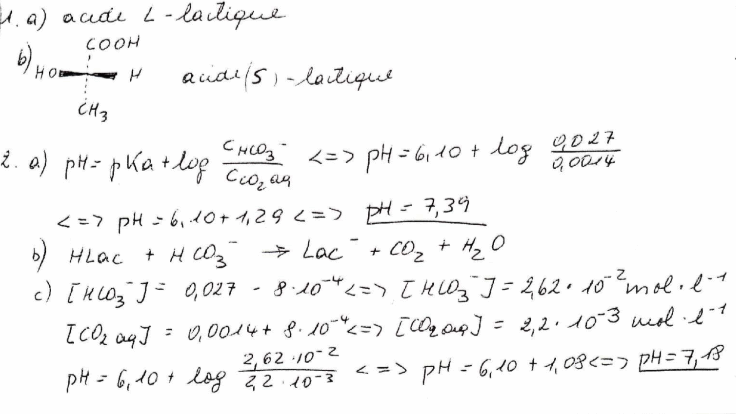 1. a) acide L-lactique
COOH
b) HO H acide (S)-lactique
CH3
2. a) pH = pKa + log C HCO3⁻ / C CO2 aq <=> pH = 6,10 + log 0,027 / 0,0014
<=> pH = 6,10 + 1,29 <=> pH = 7,39
b) HLac + HCO3⁻ → Lac⁻ + CO2 + H2O
c) [HCO3⁻] = 0,027 - 8·10⁻⁴ <=> [HCO3⁻] = 2,62·10⁻² mol·l⁻¹
[CO2 aq] = 0,0014 + 8·10⁻⁴ <=> [CO2 aq] = 2,2·10⁻³ mol·l⁻¹
pH = 6,10 + log 2,62·10⁻² / 2,2·10⁻³ <=> pH = 6,10 + 1,08 <=> pH = 7,18